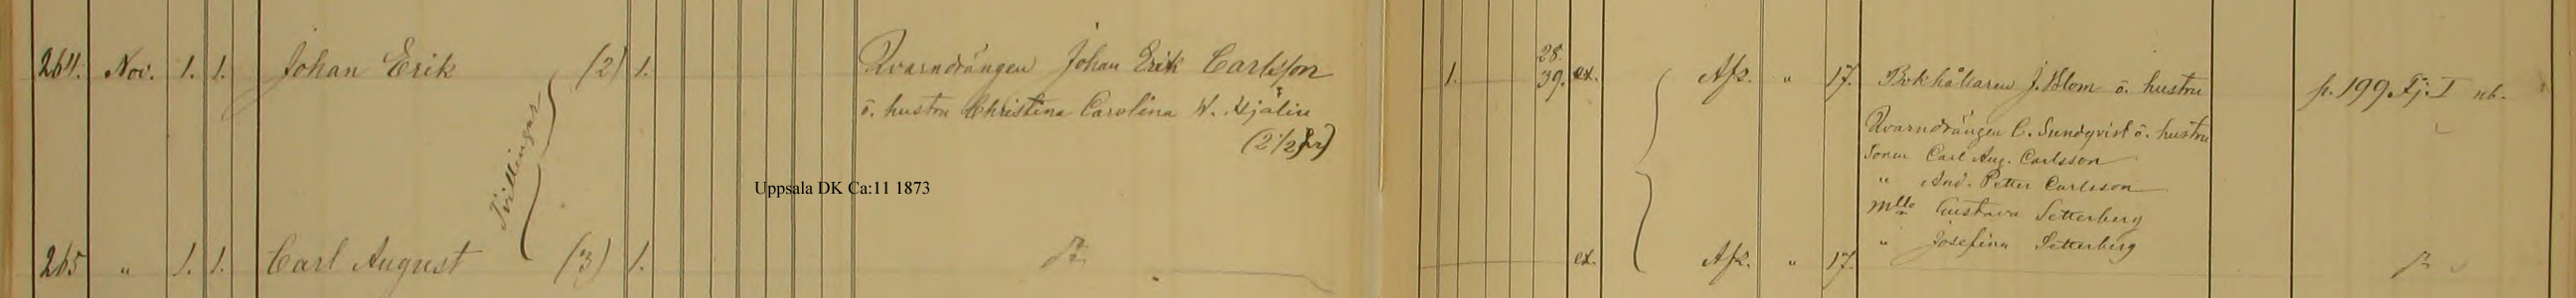 264. Nov. 1. 1. Johan Erik (2) 1. Qvarndrängen Johan Erik Carlsson 1. 28. 39. ex. Afk. " 17. Bokhållaren J. Blom o. hustru p. 199. Fj. I nb.
o. hustru Christina Carolina W. Hjälm
(2 1/2 år)
Tvillingar
Qvarndrängen C. Sundqvist o. hustru
Sonen Carl Aug. Carlsson
" And. Petter Carlsson
Uppsala DK Ca:11 1873
Mlle Gustava Setterberg
" Josefina Setterberg
265 " 1. 1. Carl August (3) 1. ex. Afk. " 17.